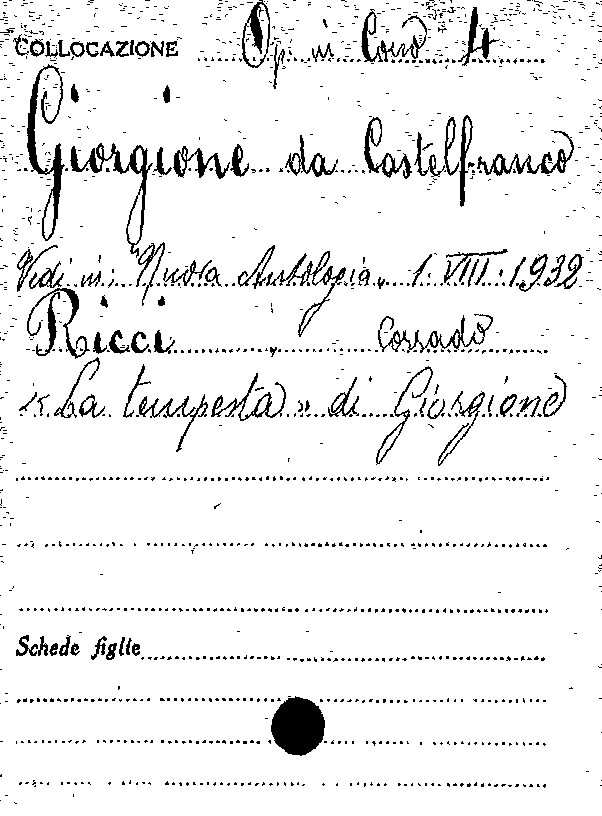 COLLOCAZIONE Op. in Corso 4
Giorgione da Castelfranco
Vedi in: "Nuova Antologia„ 1.VIII.1932
Ricci , Corrado
«La tempesta» di Giorgione
Schede figlie